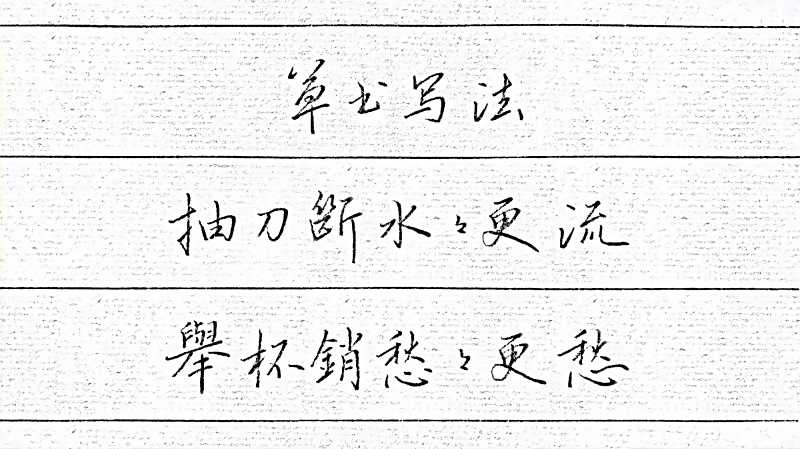 草书写法
抽刀斷水々更流
舉杯銷愁々更愁